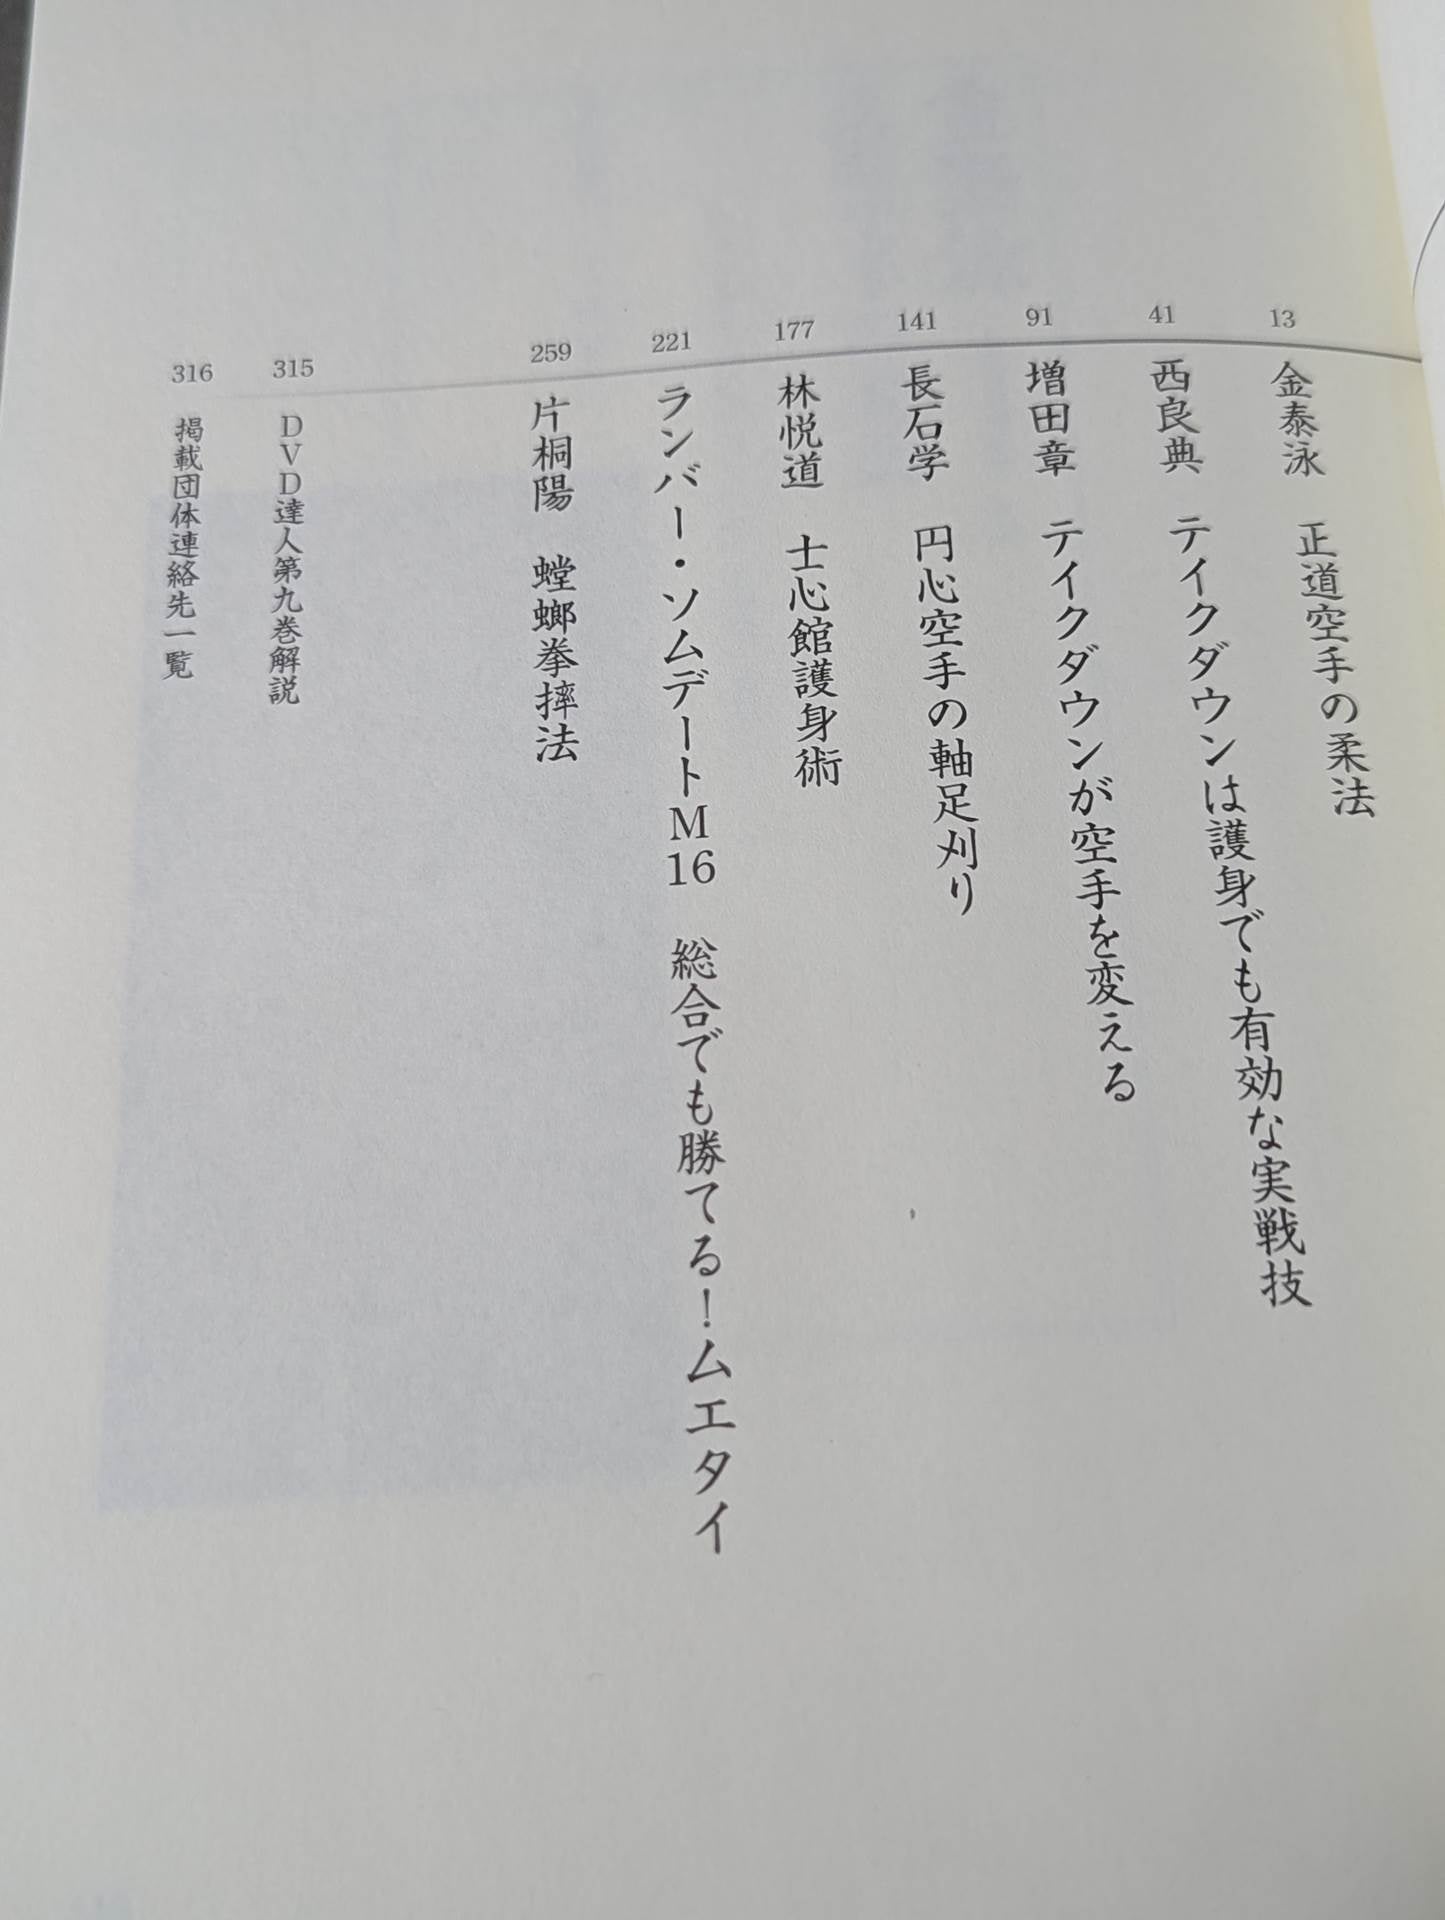 13 金泰泳 正道空手の柔法
41 西良典 テイクダウンは護身でも有効な実戦技
91 増田章 テイクダウンが空手を変える
141 長石学 円心空手の軸足刈り
177 林悦道 士心館護身術
221 ランバー・ソムデートM16 総合でも勝てる！ムエタイ
259 片桐陽 螳螂拳摔法
315 DVD達人第九巻解説
316 掲載団体連絡先一覧